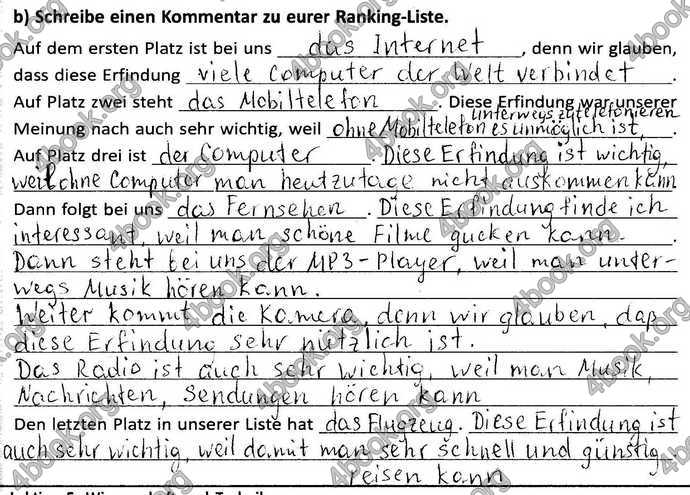 b) Schreibe einen Kommentar zu eurer Ranking-Liste.
Auf dem ersten Platz ist bei uns das Internet, denn wir glauben,
dass diese Erfindung viele Computer der Welt verbindet.
Auf Platz zwei steht das Mobiltelefon. Diese Erfindung war unserer
unterwegs zu telefonieren
Meinung nach auch sehr wichtig, weil ohne Mobiltelefon es unmöglich ist.
Auf Platz drei ist der Computer. Diese Erfindung ist wichtig,
weil ohne Computer man heutzutage nicht auskommen kann
Dann folgt bei uns das Fernsehen. Diese Erfindung finde ich
interessant, weil man schöne Filme gucken kann.
Dann steht bei uns der MP3-Player, weil man unter-
wegs Musik hören kann.
Weiter kommt die Kamera, denn wir glauben, daß
diese Erfindung sehr nützlich ist.
Das Radio ist auch sehr wichtig, weil man Musik,
Nachrichten, Sendungen hören kann
Den letzten Platz in unserer Liste hat das Flugzeug. Diese Erfindung ist
auch sehr wichtig, weil damit man sehr schnell und günstig
reisen kann